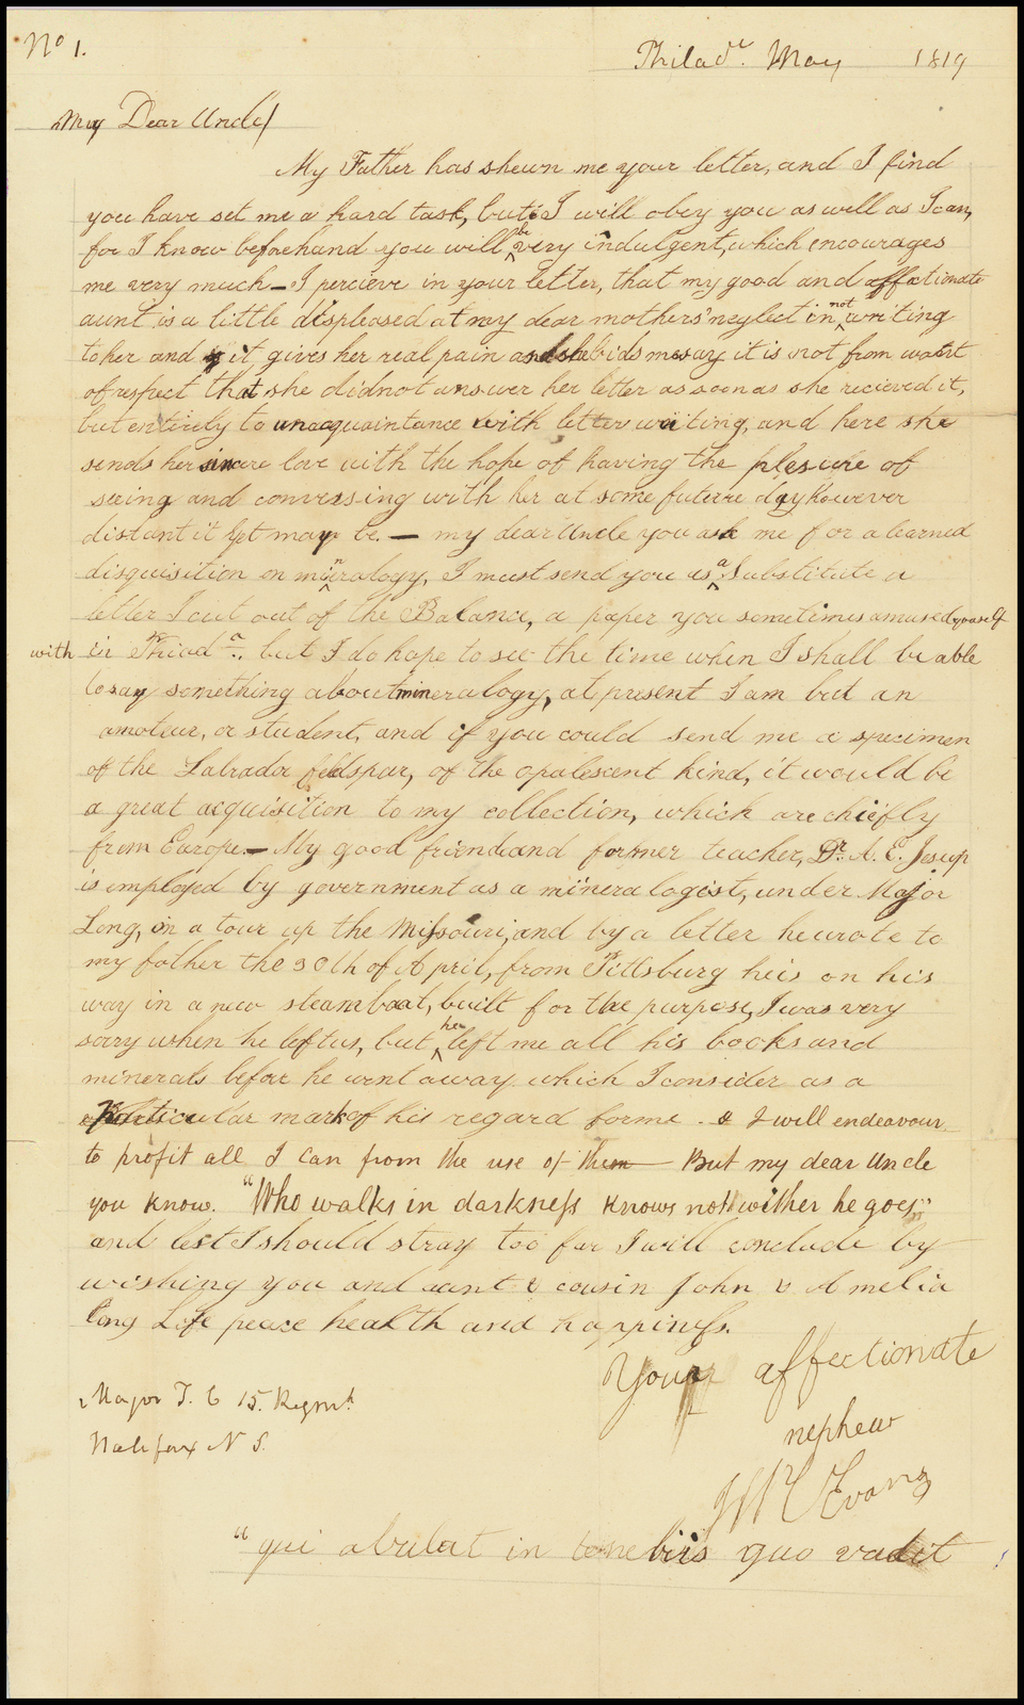 No 1.
Philada. May 1819
My Dear Uncle/
My Father has shewn me your letter, and I find
you have set me a hard task, but I will obey you as well as I can,
for I know beforehand you will be very indulgent, which encourages
me very much – I percieve in your letter, that my good and affectionate
aunt is a little displeased at my dear mothers' neglect in not writing
to her and it gives her real pain and she bids me say it is not from want
of respect that she did not answer her letter as soon as she recieved it,
but entirely to unacquaintance with letter writing, and here she
sends her sincere love with the hope of having the plesure of
seeing and conversing with her at some future day however
distant it yet may be. – my dear Uncle you ask me for a learned
disquisition on minralogy, I must send you as a Substitute a
letter I cut out of the Balance, a paper you sometimes amused yourself
with in Philada. but I do hope to see the time when I shall be able
to say something about mineralogy, at present I am but an
amateur, or student, and if you could send me a specimen
of the Labrador feldspar, of the opalescent kind, it would be
a great acquisition to my collection, which are chiefly
from Europe. – My good friend and former teacher, Dr. A. E. Jesup
is employed by government as a mineralogist, under Major
Long, on a tour up the Missouri, and by a letter he wrote to
my father the 30th of April, from Pittsburg he is on his
way in a new steamboat, built for the purpose, I was very
sorry when he left us, but he left me all his books and
minerals before he went away which I consider as a
Particular mark of his regard for me. & I will endeavour
to profit all I can from the use of them – But my dear Uncle
you know. "Who walks in darkness knows not wither he goes"
and lest I should stray too far I will conclude by
wishing you and aunt & cousin John & Amelia
long Life peace health and happiness.
Your affectionate
nephew
Evans
Major T. C 15. Regmt.
Halifax N S.
"qui abulat in tenebris quo vadit